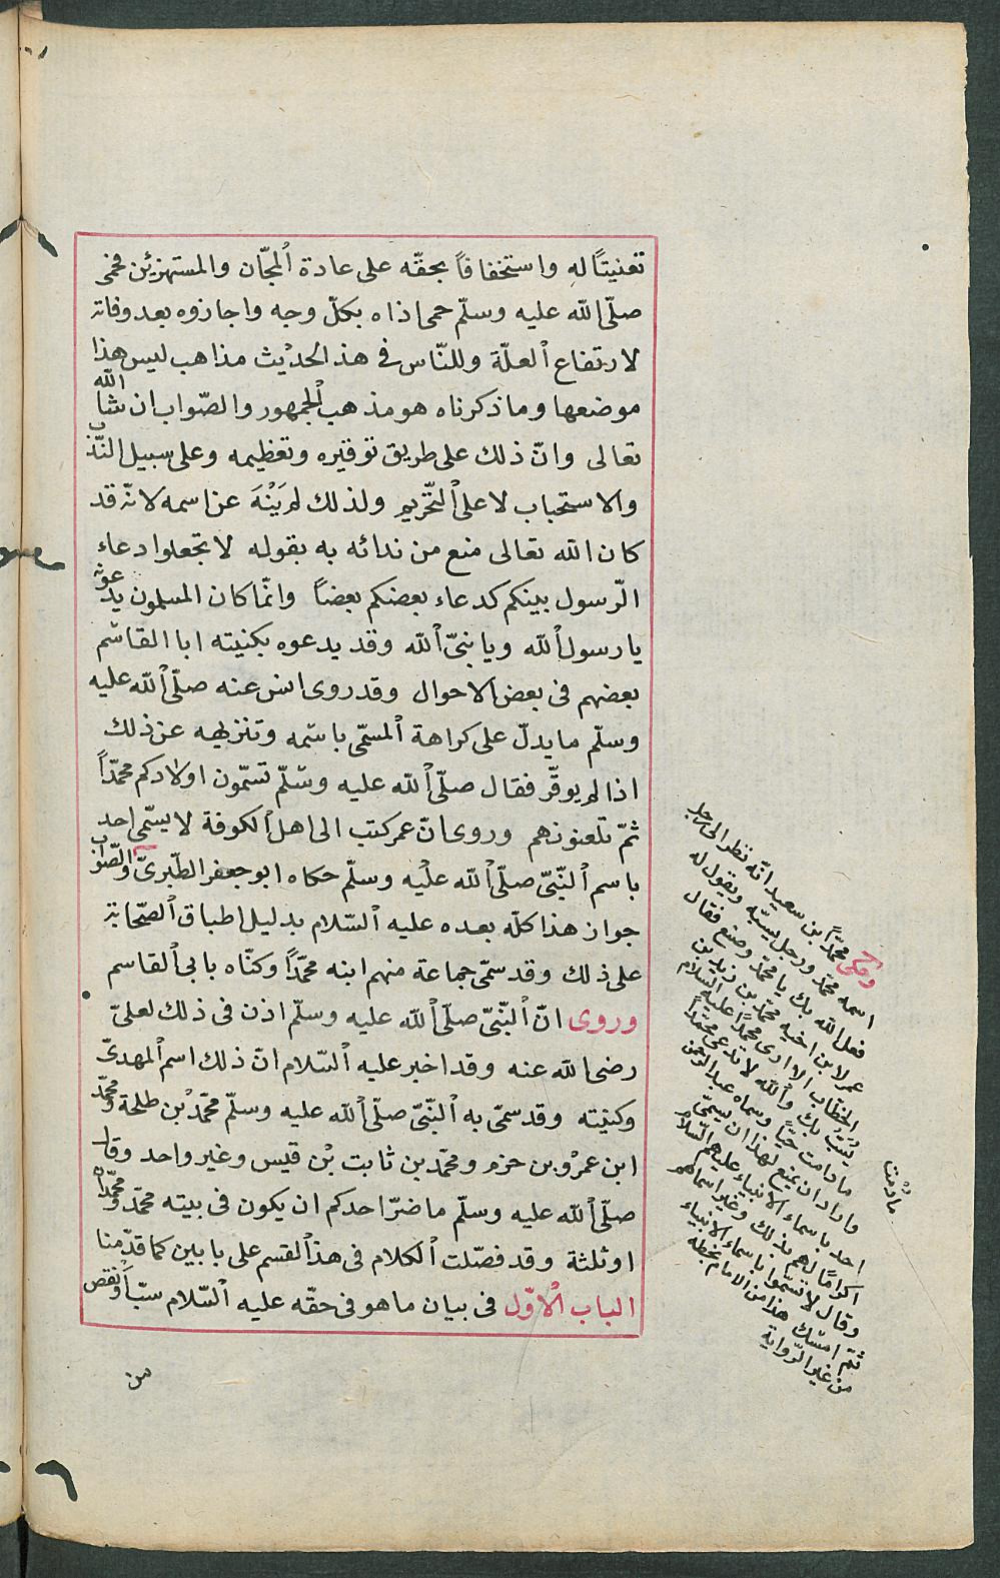 تعنيتًا له واستخفافاً بحقّه على عادة المجّان والمستهزئن فحمى
صلّى الله عليه وسلّم حمى اذاه بكلّ وجه واجازوه بعد وفاته
لارتفاع العلّة وللنّاس فى هذ الحديث مذاهب ليس هذا
موضعها وما ذكرناه هو مذهب الجمهور والصّواب ان شا الله
تعالى وانّ ذلك على طريق توقيره وتعظيمه وعلى سبيل النّدب
والاستحباب لا على التّحريم ولذلك لم يَنْهَ عن اسمه لانّه قد
كان الله تعالى منع من ندائه به بقوله لا تجعلوا دعاء
الرّسول بينكم كدعاء بعضكم بعضاً وانّما كان المسلمون يدعونه
يا رسول الله ويا نبىّ الله وقد يدعوه بكنيته ابا القاسم
بعضهم فى بعض الاحوال وقد روى انس عنه صلّى الله عليه
وسلّم ما يدلّ على كراهة المسمّى باسمه وتنزيهه عن ذلك
اذا لم يوقّر فقال صلّى الله عليه وسلّم تسمّون اولادكم محمّداً
ثمّ تلعنونهم وروى انّ عمر كتب الى اهل الكوفة لا يسمّى احد
باسم النّبىّ صلّى الله عليه وسلّم حكاه ابو جعفر الطّبرىّ والصّواب
جواز هذا كلّه بعده عليه السّلام بدليل اطباق الصّحابة
على ذلك وقد سمّى جماعة منهم ابنه محمّداً وكنّاه بابى القاسم
وروى انّ النّبىّ صلّى الله عليه وسلّم اذن فى ذلك لعلىّ
رضى الله عنه وقد اخبر عليه السّلام انّ ذلك اسم المهدىّ
وكنيته وقد سمّى به النّبىّ صلّى الله عليه وسلّم محمّد بن طلحة ومحمّد
ابن عمرو بن حزم ومحمّد بن ثابت بن قيس وغير واحد وقال
صلّى الله عليه وسلّم ما ضرّ احدكم ان يكون فى بيته محمّد ومحمّدان
او ثلثة وقد فصّلت الكلام فى هذ القسم على بابين كما قدّمنا
الباب الاوّل فى بيان ما هو فى حقّه عليه السّلام سبّاً ونقص
من
وحكى محمّد بن سعيد انّه نظر الى رجل
اسمه محمّد ورجل يسبّه ويقول له
فعل الله بك يا محمّد وصنع فقال
عمر لابن اخيه محمّد بن زيد بن
الخطّاب الا ارى محمّدًا عليه السّلام
يُسَبّ بك والله لا تدعى محمّدًا
ما دامت حيًّا وسماه عبد الرحمن
واراد ان يمنع لهذا ان يسمّى
احد باسماء الانبياء عليهم السّلام
اكرامًا لهم بذلك وغير اسماءهم
وقال لا تسمّوا باسماء الانبياء
ثمّ امسك هذا من الامام بخطه
من غير الرّواية
ما دُمْتُ